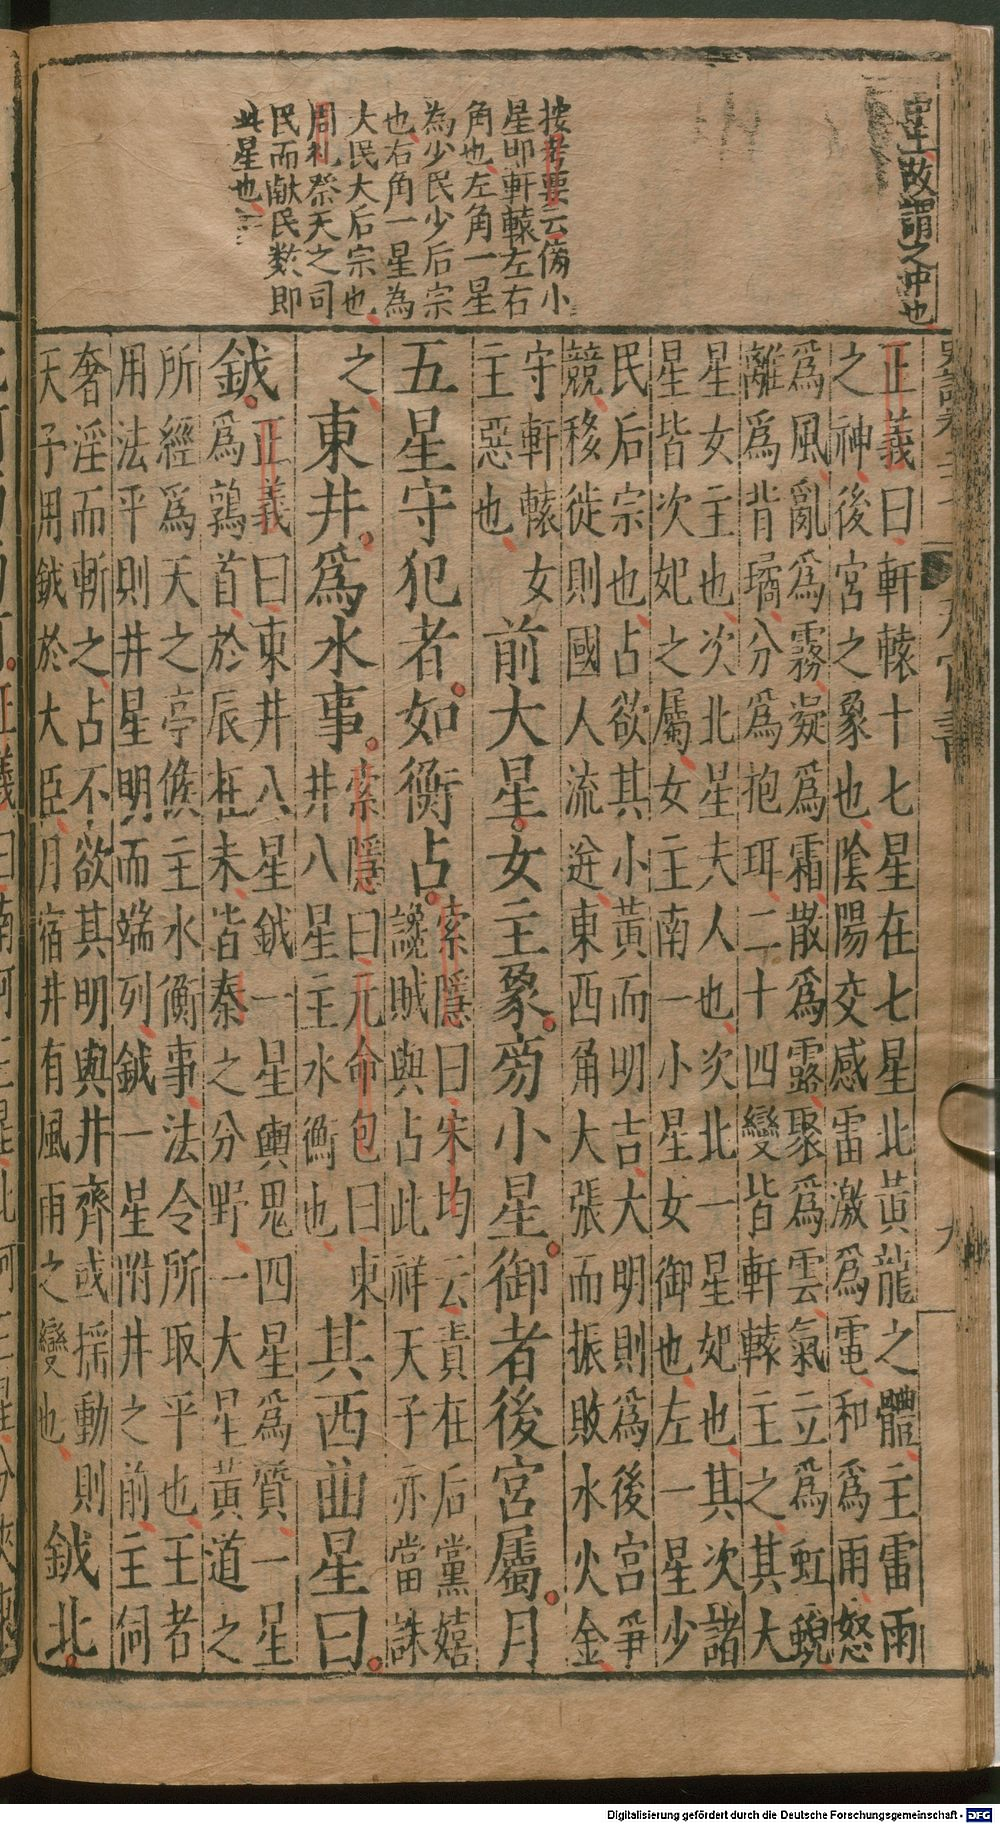 故謂之沖也
按考要云傍小
星即軒轅左右
角也左角一星
為少民少后宗
也右角一星為
大民大后宗也
周礼祭天之司
民而献民数即
此星也
天官書
九
正義曰軒轅十七星在七星北黃龍之體主雷雨
之神後宮之象也陰陽交感雷激爲電和爲雨怒
爲風亂爲霧凝爲霜散爲露聚爲雲氣立爲虹蜺
離爲背璚分爲抱珥二十四變皆軒轅主之其大
星女主也次北星夫人也次北一星妃也其次諸
星皆次妃之屬女主南一小星女御也左一星少
民后宗也占欲其小黃而明吉大明則爲後宮爭
競移徙則國人流迸東西角大張而振敗水火金
守軒轅女
主惡也
前大星女主象旁小星御者後宮屬月
五星守犯者如衡占
索隱曰宋均云責在后黨嬉
讒賊與占此祥天子亦當誅
之
東井爲水事
索隱曰元命包曰東
井八星主水衡也
其西曲星曰
鉞
正義曰東井八星鉞一星輿鬼四星爲質一星
爲鶉首於辰在未皆秦之分野一大星黃道之
所經爲天之亭候主水衡事法令所取平也王者
用法平則井星明而端列鉞一星附井之前主伺
奢淫而斬之占不欲其明與井齊或搖動則
天子用鉞於大臣月宿井有風雨之變也
鉞北
Digitalisierung gefördert durch die Deutsche Forschungsgemeinschaft - DFG